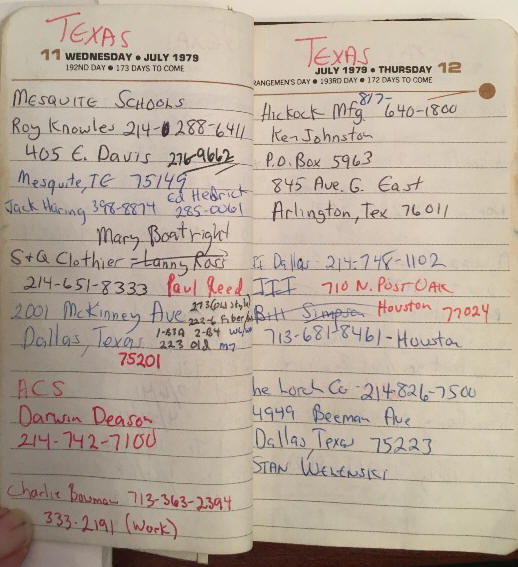 TEXAS
11 WEDNESDAY • JULY 1979
192ND DAY • 173 DAYS TO COME
MESQUITE SCHOOLS
Roy Knowles 214-288-6411
405 E. Davis 276-9662
Mesquite, TE 75149
Ed Hedrick
Jack Haring 398-8874 285-0061
Mary Boatright
S+Q Clothier - Lanny Ross
214-651-8333 Paul Reed
2001 McKinney Ave 273 (old style)
222-6 Fiber
Dallas, Texas 1-83A 2-84
223 old
75201
ACS
Darwin Deason
214-742-7100
Charlie Bowman 713-363-2394
333-2191 (Work)
TEXAS
JULY 1979 • THURSDAY 12
RANGEMEN'S DAY • 193RD DAY • 172 DAYS TO COME
817-
Hickock Mfg. 640-1800
Ken Johnston
P.O. Box 5963
845 Ave. G. East
Arlington, Tex 76011
Dallas - 214-748-1102
III 710 N. POST OAK
Bill Simpson Houston 77024
713-681-8461 - Houston
he Lorch Co - 214-826-7500
4949 Beeman Ave
Dallas, Texas 75223
STAN WELENSKI